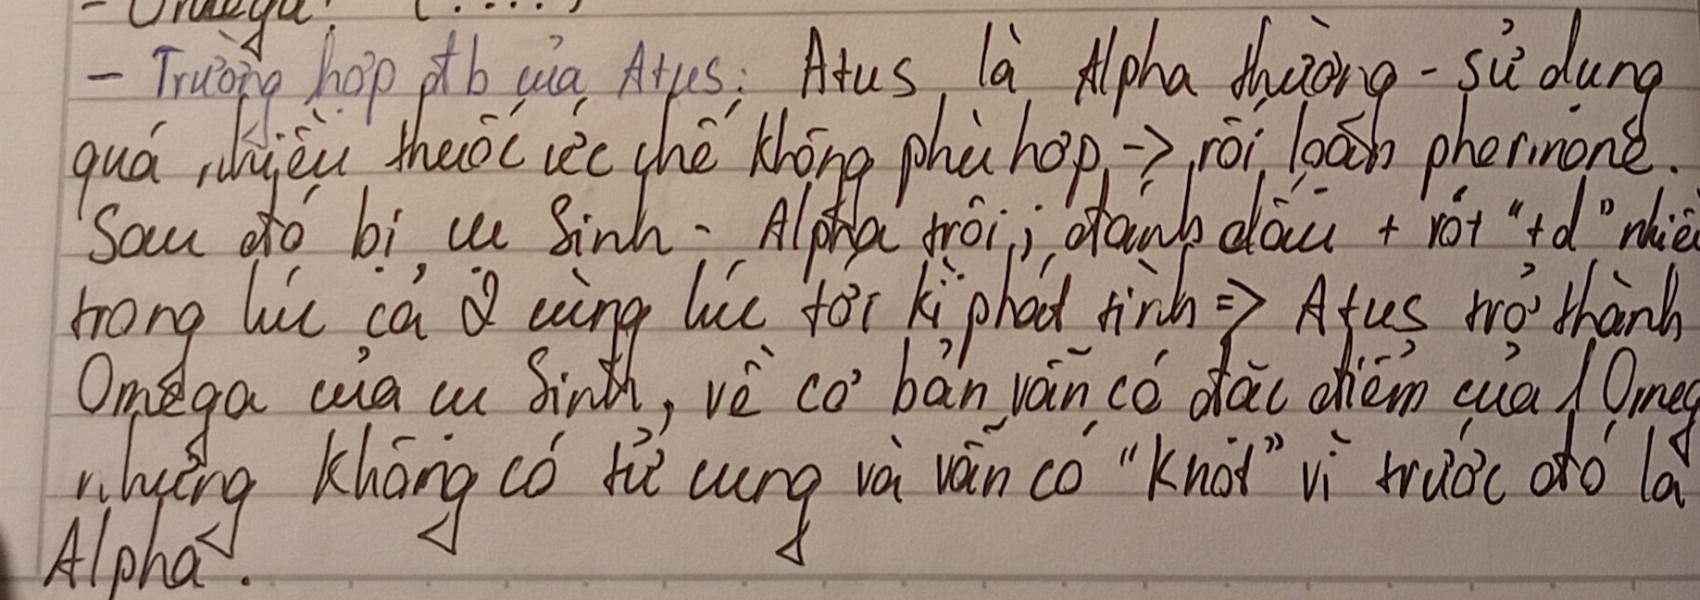 - Omega: (....)
- Trường hợp đb của Atus: Atus là Alpha thường - sử dụng
quá nhiều thuốc ức chế không phù hợp -> rối loạn phermone.
Sau đó bị ... Sinh - Alpha trội; đánh dấu + rót "td" nhiề
trong lúc cả 2 cùng lúc tới kì phát tình => Atus trở thành
Omega của ... Sinh, về cơ bản vẫn có đặc điểm của 1 Omeg
nhưng không có tử cung và vẫn có "knot" vì trước đó là
Alpha.